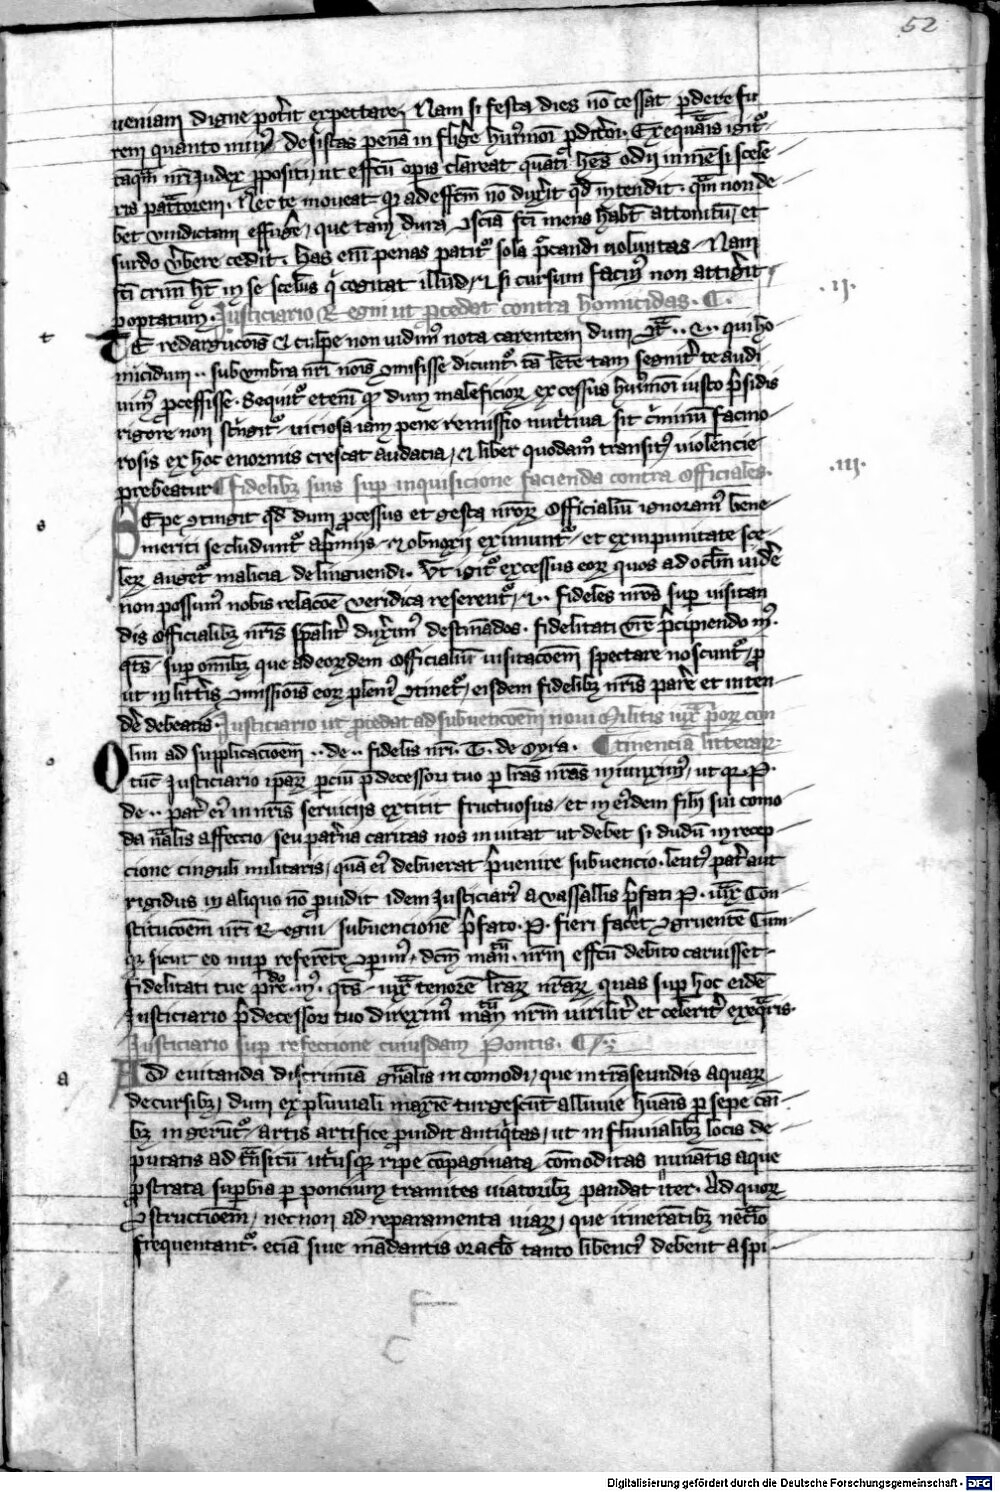 52
ueniam digne pot'it expectare. Nam si festa dies nō cessat p̱dere fu
rem quanto min9 desistas penā in flig'e
taq̄m nr̄i Judex p̱positi ut effc̄m op̱is clareat
ris pat'torem. Nec te moueat q' ad effc̄m nō dux'it qd intendit. q̄m non de
bet vindictam effug'e, que tam dura ꝯscīa sc̄i mens hab& attonitū, et
surdo v'bere cedit. has em̄ penas patit' sola p'candi uoluntas. Nam
sc̄i crim̄ h't in se scelus q' cogitat illud, & si cursum facin9 non attig'it
p̱optatum. Justiciario Regni ut p̱cedat contra homicidas. C.
.ij.
t
TE redargucōis & culpe non uidim9 nota carentem dum .. qui ho
micidium .. sub vmbra nr̄i nōis ꝯmisisse dicunt'. tā lēte tam segnit' te audi
uim9 p̱cessisse. Sequit' etenī q' dum maleficioꝝ excessus iusto p'sidis
rigore non string'it, uiciosa iam pene remissio nut'tiua sit c'minū facino
rosis ex hoc enormis crescat audacia, & liber quodam̄ transit9 uiolencie
prebeatur. fidelibꝫ suis sup̱ inquisicione facienda contra officiales.
.iij.
s
SEpe ꝯtingit qd dum p̱cessus et gesta nr̄oꝝ officialiū ignoram9 bene
meriti secludunt' a p'mijs & obnoxij eximunt', et ex impunitate sce
leꝝ auget' malicia delinquendi. Vt igit' excessus eoꝝ quos ad oclm̄ uidē
non possum9 nobis relacōe veridica referent', .. fideles nr̄os sup̱ uisitan
dis officialibꝫ nr̄is sp̄alit' dux'im9 destinādos. fidelitati vr̄e p'cipiendo m9.
q̄t9 sup̱ om̄ibꝫ que ad eoꝝdem officialiū uisitacōem spectare noscunt', p̱
ut in litt'is ꝯmissiōis eoꝝ pleni9 ꝯtinet', eisdem fidelibꝫ nr̄is par'e et inten
d'e debeatis. Justiciario ut p̱cedat ad subuencōem noui militis iux' p'oꝝ con
tinenciā litteraꝝ
o
Olim ad supplicacioem .. de .. fidelis nr̄i. T. de Myra.
tūc Justiciario ip̱aꝝ p̱ciū p'decessori tuo p̱ lr̄as nr̄as iniunxim9, ut q' .P.
de .. pat' ei9 in nr̄is seruicijs extitit fructuosus, et in ei9dem filij sui como
da n'alis affeccio, seu pat'na caritas nos inuitat ut debet si dudū in recep
cione cinguli militaris, quā ei9 debuerat p'uenire subuencio. lent9 pat' aut
rigidus in aliquo nō p̱uidit idem Justiciari9 a vassallis p'fati P. iux' Con
stitucōem nr̄i Regni, subuencionē p'fato .P. fieri fac'et ꝯgruentē Cum
q' sicut eo nup̱ referēte ꝯp̱im9, dc̄m man̄. nr̄m effc̄u debito caruisset
fidelitati tue p̱ .m9. q̄t9 iux' tenorē lr̄aꝝ nr̄aꝝ quas sup̱ hoc eidē
Justiciario p'decessori tuo direxim9 man̄ nr̄m uirilit' et celerit' exeq'ris.
Justiciario sup̱ refectione cuiusdam Pontis.
a
AD euitanda discrimina gn̄alis incomodi, que in trāseundis aquaꝝ
decursibꝫ, dum ex pluuiali maxīe turgescūt alluuie hūais p̱sepe cāi
bꝫ ingerūt', artis artifice p̱uidit antiq'tas, ut in fluuialibꝫ locis de
putatis ad t'nsitū ut'usqꝫ ripe cōpaginata cōmoditas minātis aque
p̱strata sup̱bia p̱ poncium tramites uiatoribꝫ pandat iter. Ad quoꝝ
ꝯstructioem, necnon ad reparamenta uiaꝝ, que itinerātibꝫ nec'io
frequentant'. eciā siue mādantis oraclo tanto libenci9 debent aspi
Digitalisierung gefördert durch die Deutsche Forschungsgemeinschaft - DFG